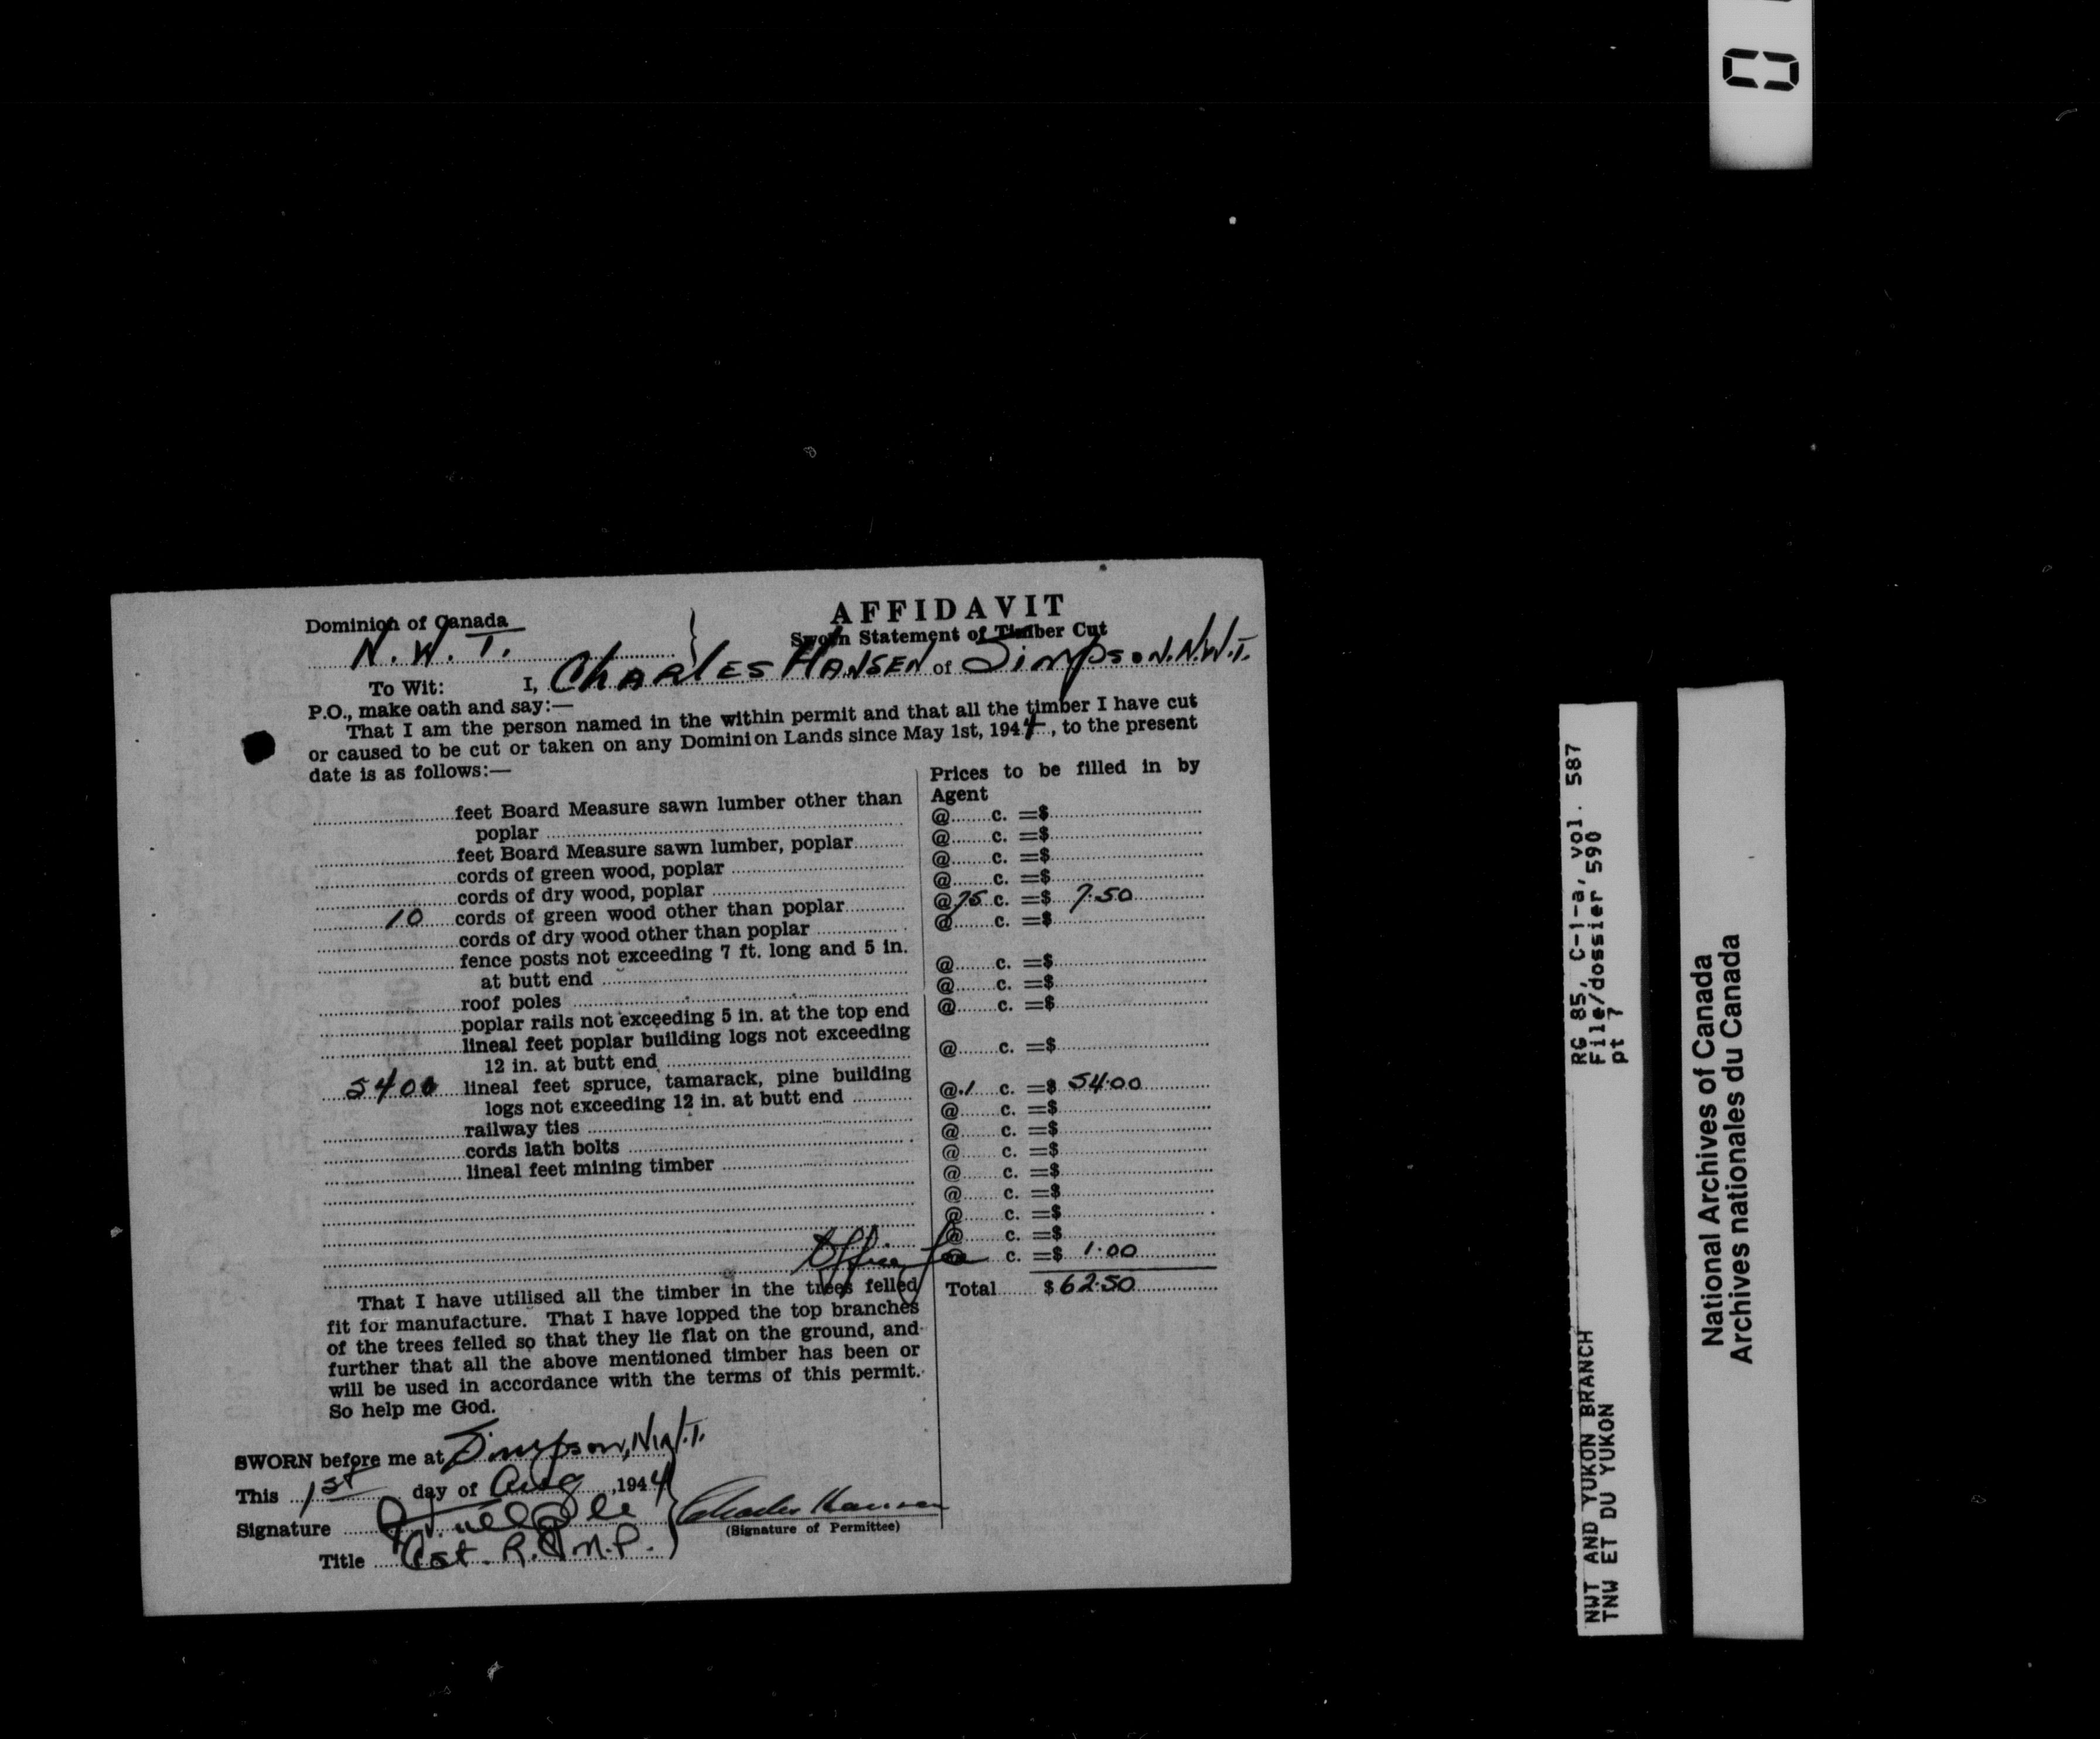 Dominion of Canada
N.W.T.
AFFIDAVIT
Sworn Statement of Timber Cut
To Wit: I, Charles Hansen of Simpson. N.W.T.
P.O., make oath and say:—
That I am the person named in the within permit and that all the timber I have cut
or caused to be cut or taken on any Dominion Lands since May 1st, 1944, to the present
date is as follows:—
Prices to be filled in by
Agent
feet Board Measure sawn lumber other than @ c. =$
poplar @ c. =$
feet Board Measure sawn lumber, poplar @ c. =$
cords of green wood, poplar @ c. =$
cords of dry wood, poplar
10 cords of green wood other than poplar @ 75 c. =$ 7.50
cords of dry wood other than poplar @ c. =$
fence posts not exceeding 7 ft. long and 5 in.
at butt end @ c. =$
roof poles @ c. =$
poplar rails not exceeding 5 in. at the top end @ c. =$
lineal feet poplar building logs not exceeding
12 in. at butt end @ c. =$
5400 lineal feet spruce, tamarack, pine building @ .1 c. =$ 54.00
logs not exceeding 12 in. at butt end @ c. =$
railway ties @ c. =$
cords lath bolts @ c. =$
lineal feet mining timber @ c. =$
@ c. =$
@ c. =$
@ c. =$
Office fee c. =$ 1.00
Total $ 62.50
That I have utilised all the timber in the trees felled
fit for manufacture. That I have lopped the top branches
of the trees felled so that they lie flat on the ground, and
further that all the above mentioned timber has been or
will be used in accordance with the terms of this permit.
So help me God.
SWORN before me at Simpson, N.W.T.
This 1st day of Aug, 1944
Signature
Charles Hansen
(Signature of Permittee)
Title Cst. R.C.M.P.
RG 85, C-1-a, vol. 587
File/dossier 590
pt 7
NWT AND YUKON BRANCH
TNW ET DU YUKON
National Archives of Canada
Archives nationales du Canada
0